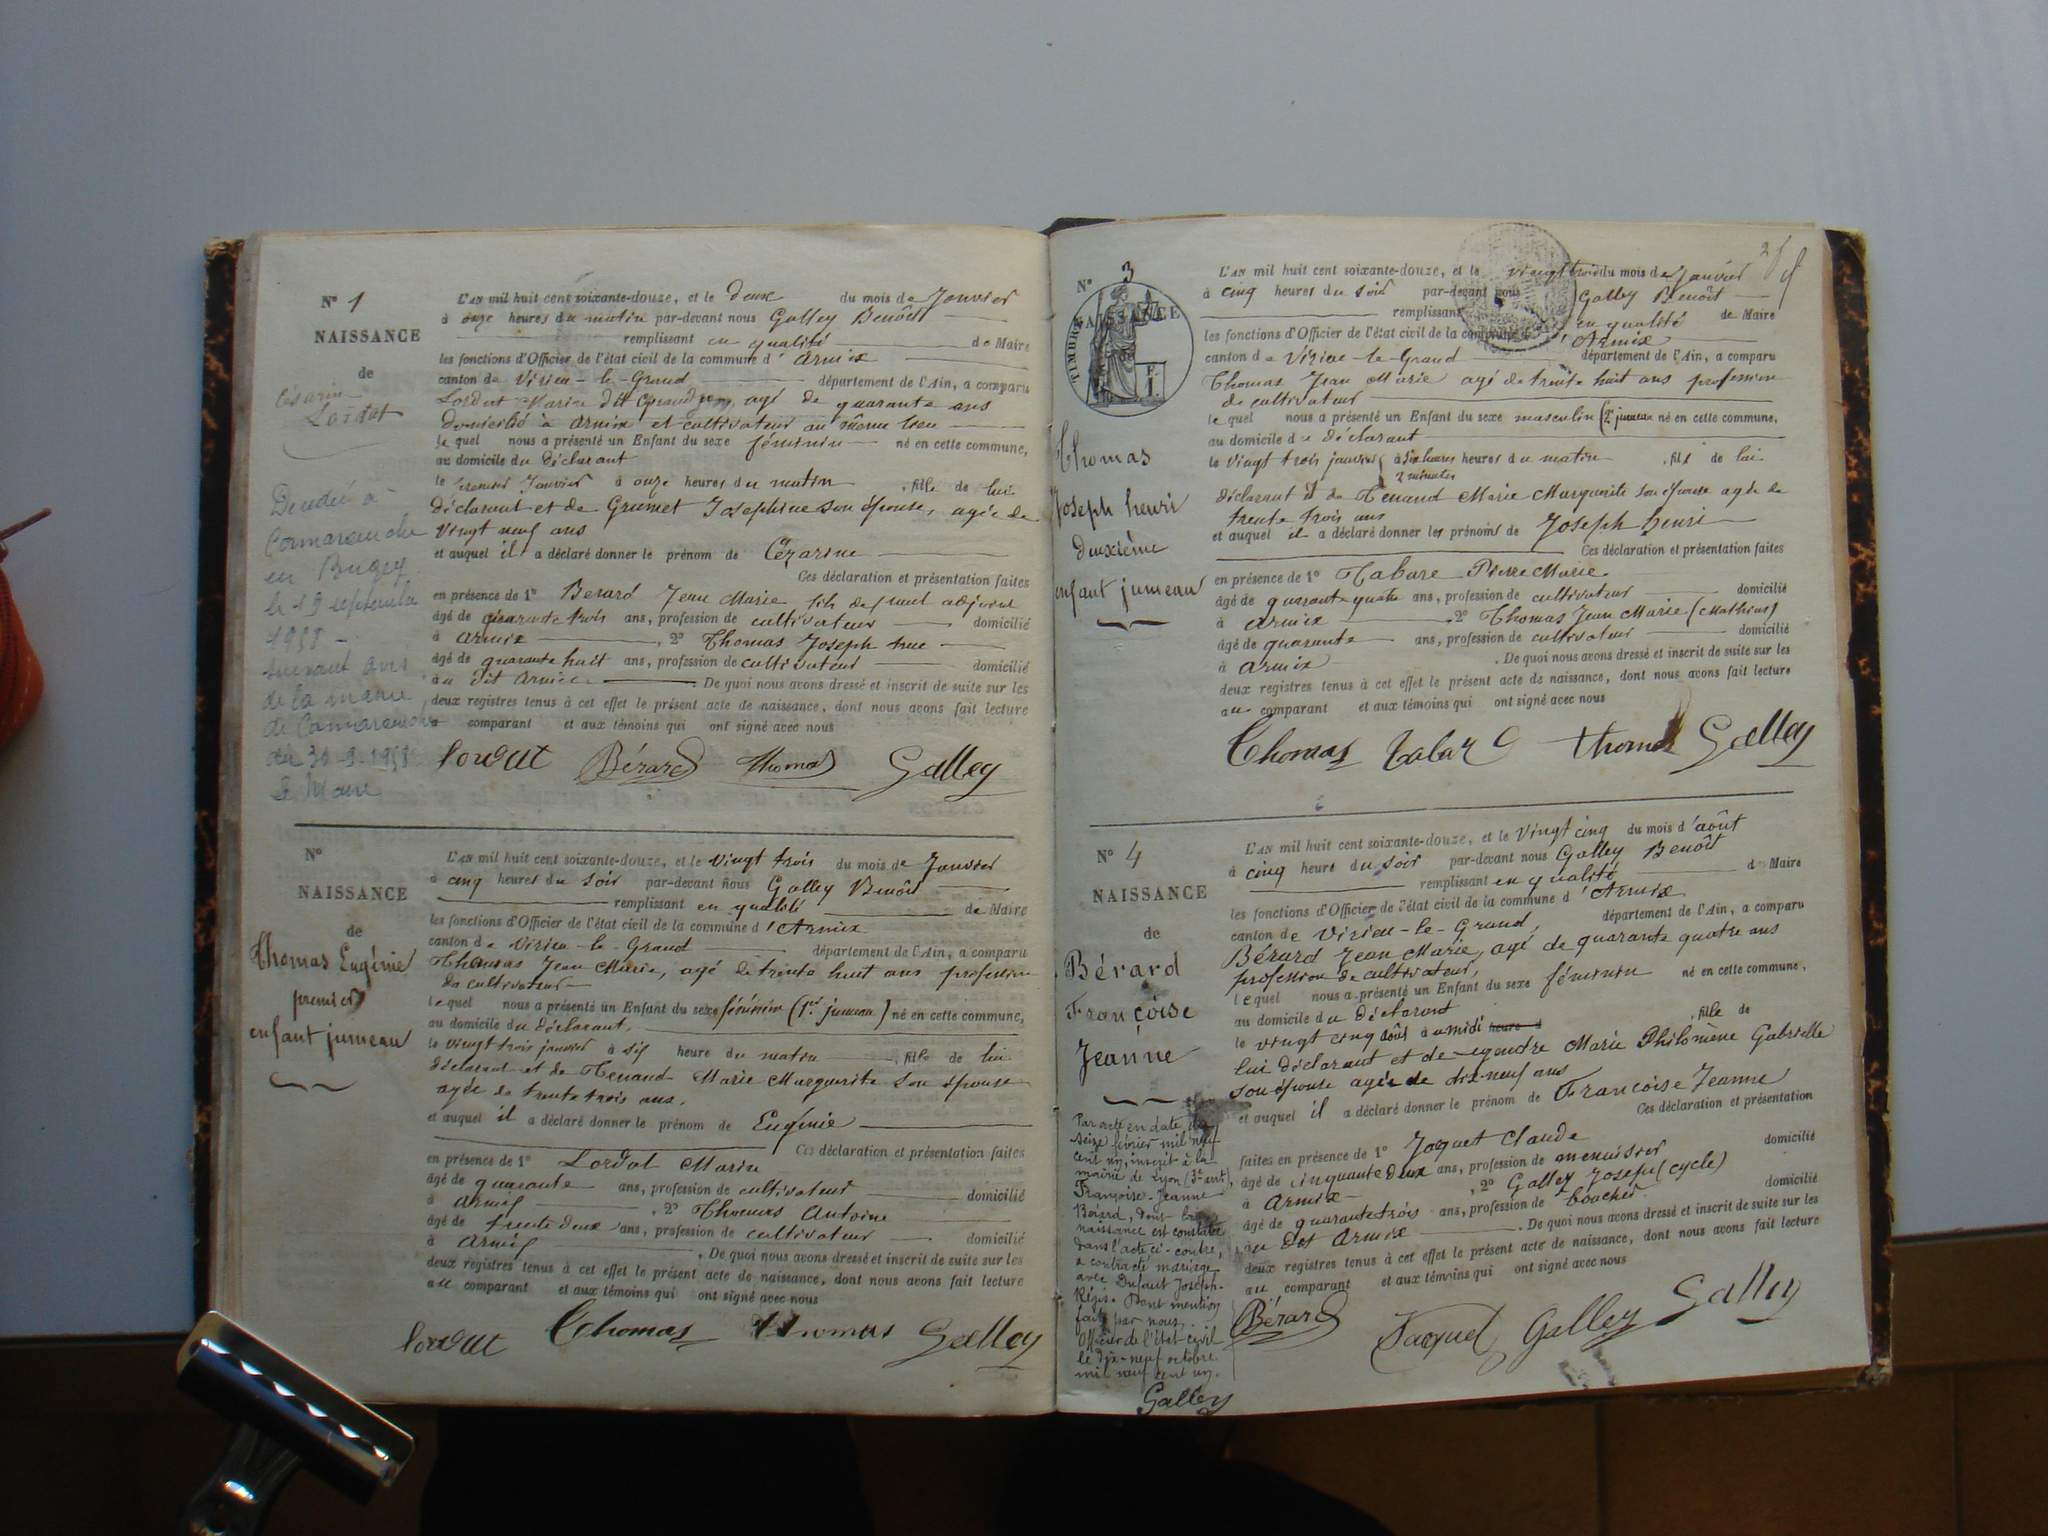 N° 1
NAISSANCE
de
Césarine
Lordat
Décédée à
Cormaranche
en Bugey
le 19 septembre
1958 -
suivant avis
de la mairie
de Cormaranche
du 30-9-1958
Le Maire
L'AN mil huit cent soixante-douze, et le deux du mois de Janvier
à onze heures du matin par-devant nous Galley Benoît
remplissant en qualité de Maire
les fonctions d'Officier de l'état civil de la commune d'Armix
canton de Virieu-le-Grand département de l'Ain, a comparu
Lordat Marin dit agé de quarante ans
domicilié à Armix et cultivateur au même lieu
le quel nous a présenté un Enfant du sexe féminin né en cette commune,
au domicile du déclarant
le premier Janvier à onze heures du matin, fille de lui
déclarant et de Grumet Joséphine son épouse, agée de
vingt neuf ans
et auquel il a déclaré donner le prénom de Cézarine
Ces déclaration et présentation faites
en présence de 1° Berard Jean Marie fils defunt adjoint
âgé de quarante trois ans, profession de cultivateur domicilié
à Armix, 2° Thomas Joseph
âgé de quarante huit ans, profession de cultivateur domicilié
au dit Armix. De quoi nous avons dressé et inscrit de suite sur les
deux registres tenus à cet effet le présent acte de naissance, dont nous avons fait lecture
comparant et aux témoins qui ont signé avec nous
Lordat Bérard Thomas Galley
N°
NAISSANCE
de
Thomas Eugénie
premier
enfant jumeau
L'AN mil huit cent soixante-douze, et le vingt trois du mois de Janvier
à cinq heures du soir par-devant nous Galley Benoît
remplissant en qualité de Maire
les fonctions d'Officier de l'état civil de la commune d'Armix
canton de Virieu-le-Grand département de l'Ain, a comparu
Thomas Jean Marie, agé de trente huit ans profession
de cultivateur
lequel nous a présenté un Enfant du sexe féminin (1er jumeau) né en cette commune,
au domicile du déclarant,
le vingt trois janvier à six heure du matin, fille de lui
déclarant et de Tenand Marie Marguerite son épouse
agée de trente trois ans,
et auquel il a déclaré donner le prénom de Eugénie
Ces déclaration et présentation faites
en présence de 1° Lordat Marin
âgé de quarante ans, profession de cultivateur domicilié
à Armix, 2° Thomas Antoine
âgé de trente deux ans, profession de cultivateur domicilié
à Armix. De quoi nous avons dressé et inscrit de suite sur les
deux registres tenus à cet effet le présent acte de naissance, dont nous avons fait lecture
au comparant et aux témoins qui ont signé avec nous
Lordat Thomas Thomas Galley
N° 3
NAISSANCE
TIMBRE
F.
1.
Thomas
Joseph henri
deuxième
enfant jumeau
L'AN mil huit cent soixante-douze, et le vingt trois du mois de Janvier
à cinq heures du soir par-devant nous Galley Benoît
remplissant en qualité de Maire
les fonctions d'Officier de l'état civil de la commune d'Armix
canton de Virieu-le-Grand département de l'Ain, a comparu
Thomas Jean Marie agé de trente huit ans profession
de cultivateur
le quel nous a présenté un Enfant du sexe masculin (2e jumeau né en cette commune,
au domicile du déclarant
le vingt trois janvier à six heures heures du matin, fils de lui
2 minutes
déclarant et de Tenand Marie Marguerite son épouse agée de
trente trois ans
et auquel il a déclaré donner les prénoms de Joseph henri
Ces déclaration et présentation faites
en présence de 1° Tabare Pierre Marie.
âgé de quarante quatre ans, profession de cultivateur domicilié
à Armix, 2° Thomas Jean Marie (Mathieu)
âgé de quarante ans, profession de cultivateur domicilié
à Armix. De quoi nous avons dressé et inscrit de suite sur les
deux registres tenus à cet effet le présent acte de naissance, dont nous avons fait lecture
au comparant et aux témoins qui ont signé avec nous
Thomas Tabare Thomas Galley
N° 4
NAISSANCE
de
Bérard
Françoise
Jeanne
Par acte en date du
seize février mil neuf
cent un, inscrit à la
mairie de Lyon (3e arrt),
Françoise-Jeanne
Bérard, dont la
naissance est constatée
dans l'acte ci-contre,
a contracté mariage
avec Dufaut Joseph-
Régis. Dont mention
faite par nous,
Officier de l'état civil
le dix-neuf octobre
mil neuf cent un.
Galley
L'AN mil huit cent soixante-douze, et le vingt cinq du mois d'août
à cinq heure du soir par-devant nous Galley Benoît
remplissant en qualité de Maire
les fonctions d'Officier de l'état civil de la commune d'Armix
canton de Virieu-le-Grand, département de l'Ain, a comparu
Bérard Jean Marie, agé de quarante quatre ans
profession de cultivateur,
lequel nous a présenté un Enfant du sexe féminin né en cette commune,
au domicile du déclarant
le vingt cinq août à midi heure d, fille de
lui déclarant et de Marie Philomène Gabrielle
son épouse agée de dix-neuf ans
et auquel il a déclaré donner le prénom de Françoise Jeanne
Ces déclaration et présentation
faites en présence de 1° Jaquet Claude
âgé de cinquante deux ans, profession de menuisier domicilié
à Armix, 2° Galley Joseph (cycle)
âgé de quarante trois ans, profession de boucher domicilié
au dit Armix. De quoi nous avons dressé et inscrit de suite sur les
deux registres tenus à cet effet le présent acte de naissance, dont nous avons fait lecture
au comparant et aux témoins qui ont signé avec nous
Bérard Jacquet Galley Galley